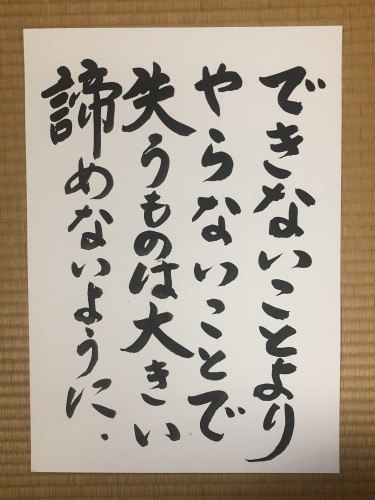 できないことより
やらないことで
失うものは大きい
諦めないように.